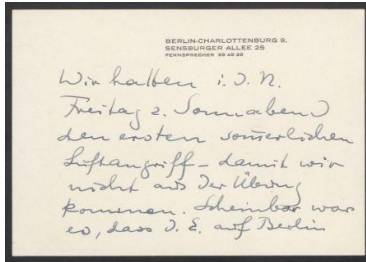 BERLIN-CHARLOTTENBURG 9,
SENSBURGER ALLEE 25
FERNSPRECHER 99 49 28
Wir hatten i. d. N.
Freitag z. Sonnabend
den ersten som̅erlichen
Luftangriff – damit wir
nicht aus der Übung
kom̅en. Scheinbar war
es, dass d. E. auf Berlin